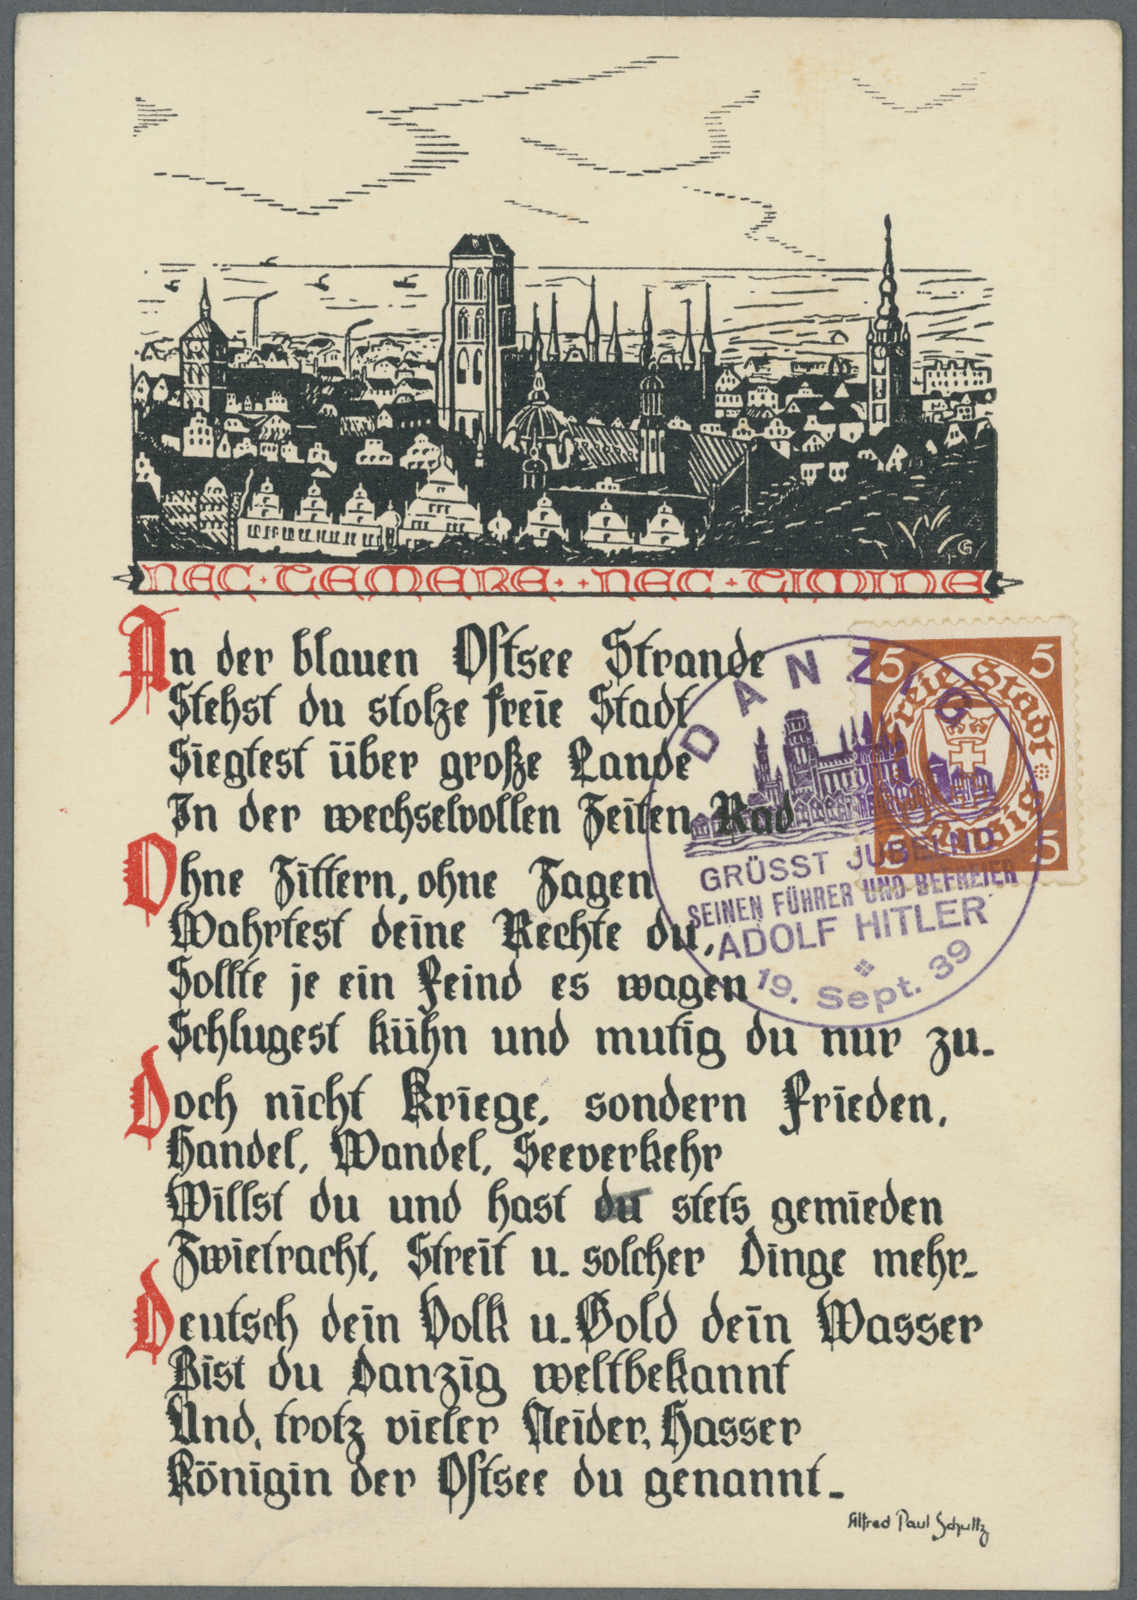 NEC · TEMERE · · NEC · TIMIDE
An der blauen Ostsee Strande
Stehst du stolze freie Stadt
Siegtest über große Lande
In der wechselvollen Zeiten Rad
Ohne Zittern, ohne Zagen
Wahrtest deine Rechte du,
Sollte je ein Feind es wagen
Schlugest kühn und mutig du nur zu.
Doch nicht Kriege, sondern Frieden,
Handel, Wandel, Seeverkehr
Willst du und hast du stets gemieden
Zwietracht, Streit u. solcher Dinge mehr.
Deutsch dein Volk u. Gold dein Wasser
Bist du Danzig weltbekannt
Und, trotz vieler Neider, Hasser
Königin der Ostsee du genannt.
Alfred Paul Schultz
DANZIG
GRÜSST JUBELND
SEINEN FÜHRER UND BEFREIER
ADOLF HITLER
19. Sept. 39
5 5
Freie Stadt
Danzig
5 5